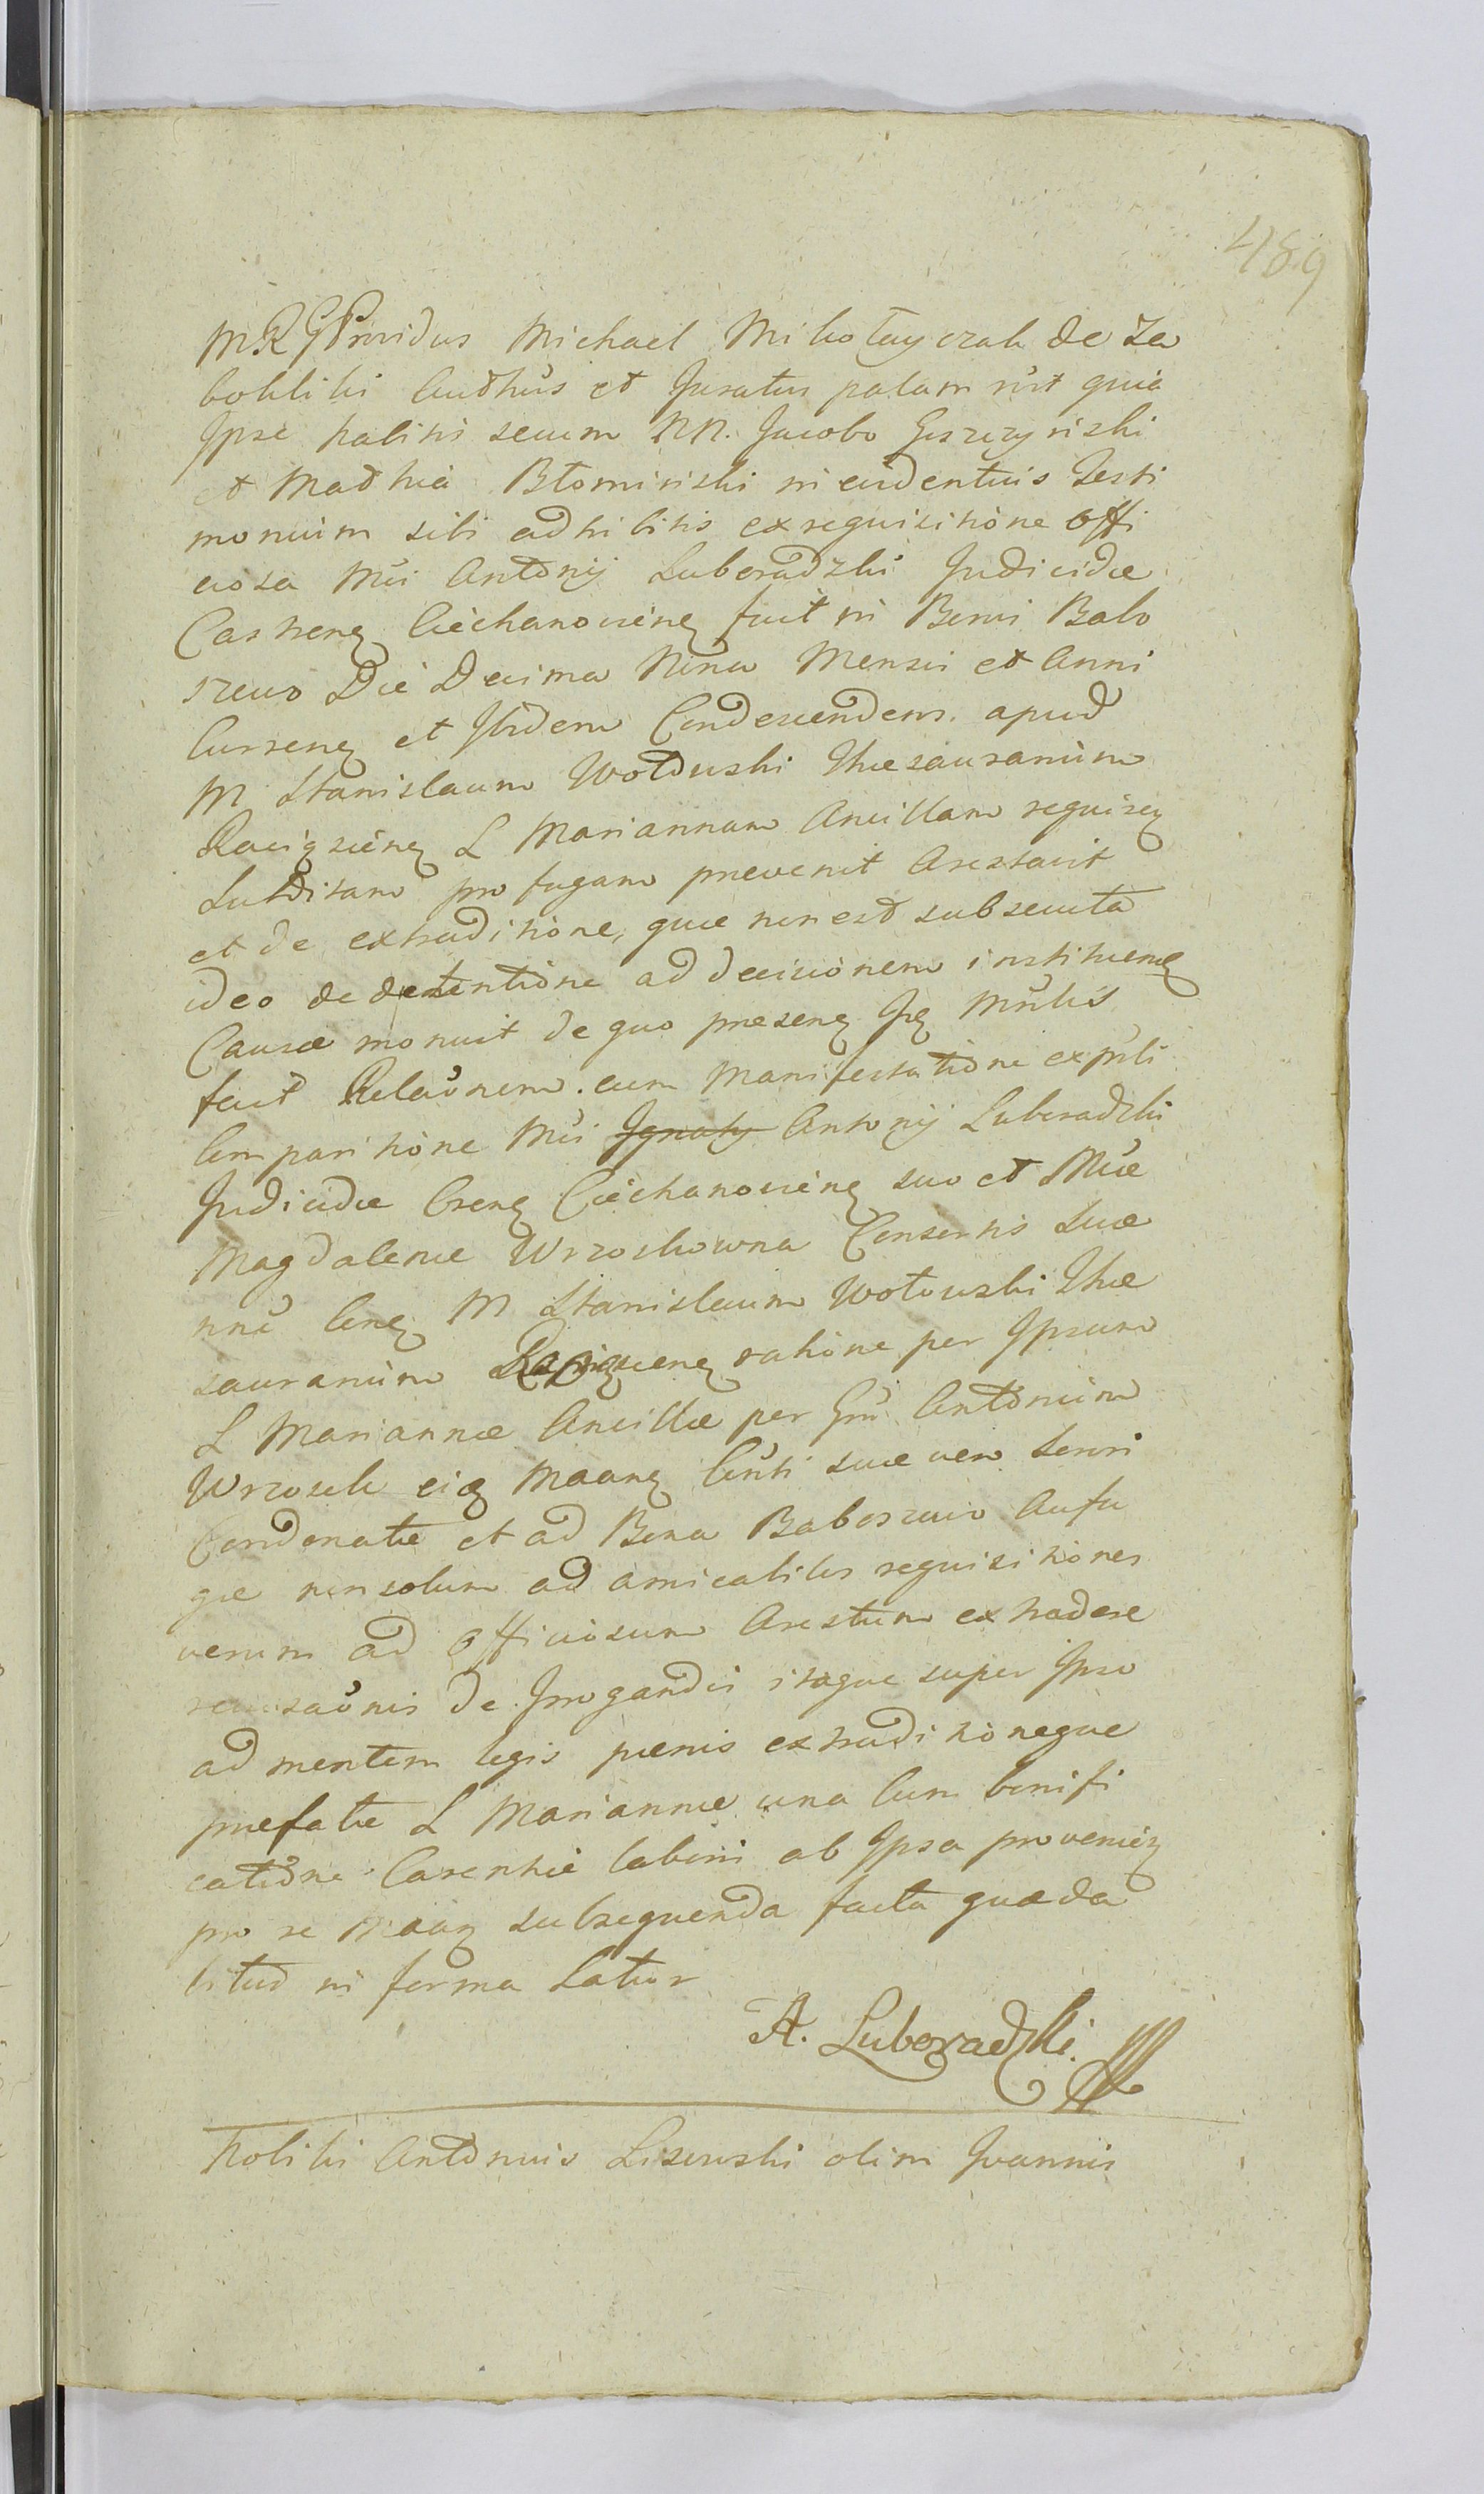 489
MRG Providus Michael Mikołayczak de Za
bokliki Authũs et Juratus palam rũit quia
Ipse habitis secum NN. Jacobo Gszczynski
et Mathia Błominski in evidentius Testi
monium sibi adhibitis ex requisitione offi
ciosa Mũi Antonij Luboradzki Judicidæ
Castreñ Ciechanovieñ fuit in Bonis Babo
szewo Die Decima Nona Mensis et Anni
Curreñ et Ibidem Condescendens. apud
M Stanislaum Wołowski Thesaurarium
Raciązieñ L Mariannam Ancillam requiseñ
Subditam profugam prevenit Arestavit
et de extraditione, quæ non est subsecuta
ideo de detentione ad decisionem instituenñ
Causæ monuit de quo preseñ Mñlis
fecit Relaõnem. cum Manifestatione ex pñti
Comparitione Mũi Ignatij Antonij Luboradzki
Judicidæ Creñ Ciechanovieñ suo et Mũæ
Magdalenæ Wrzoskowna Consortis suæ
nnẽ Coñ M Stanislaum Wołowski The
saurarium Raciązieñ ratione per Ipsum
L Mariannæ Ancillæ per Gñũ Antonium
Wrzosek eiq Maanq Cõnsti suæ vero Sorori
Condonatæ et ad Bona Baboszewo Aufu
gæ non solum ad amicabiles requisitiones
verum ad officiosum Arestum extradere
recusaõnis de Irrogandis itaque super Ipso
ad mentem legis pœnis extraditioneque
prefatæ L Mariannæ una Cum bonifi
catione Carentiæ laboris ab Ipsa provenieñ
pro se Maanq subsequenda facta quæ da
bitur in forma Latior
A. Luboradzki.
Nobilis Antonius Lisowski olim Joannis